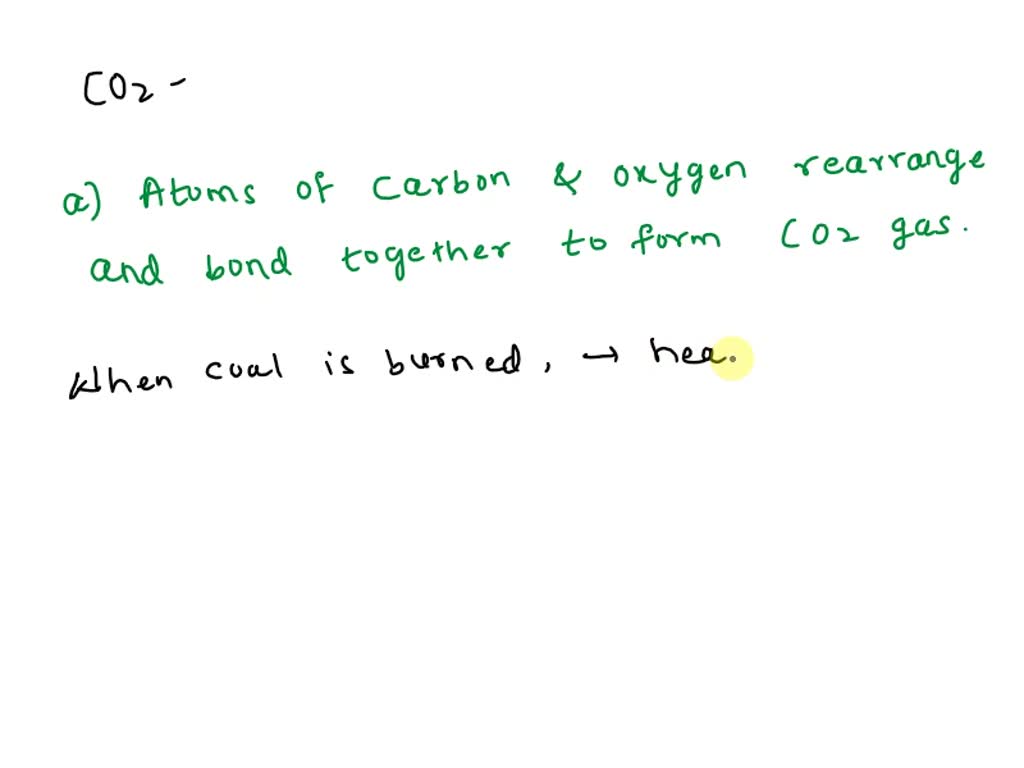 CO2 -
a) Atoms of carbon & oxygen rearrange
and bond together to form CO2 gas.
When coal is burned, → hea.